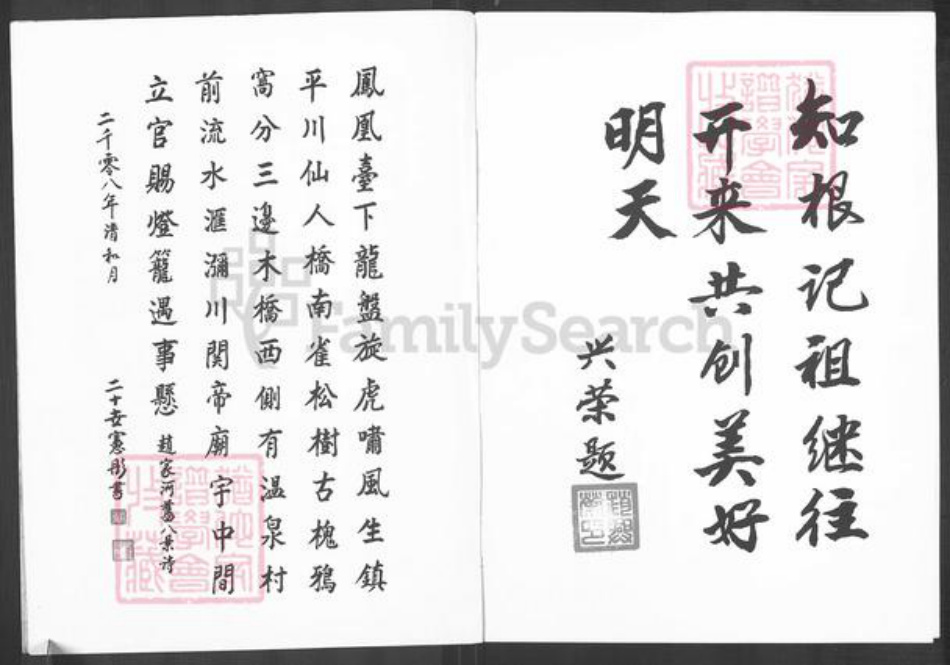 知根记祖继往
开来共创美好
明天
兴荣题
鳳凰臺下龍盤旋虎嘯風生鎮
平川仙人橋南雀松樹古槐鴉
窩分三邊木橋西側有温泉村
前流水滙瀰川関帝廟宇中間
立官賜燈籠遇事懸
趙家河舊八景詩
二千零八年清和月
憲彤書
FamilySearch